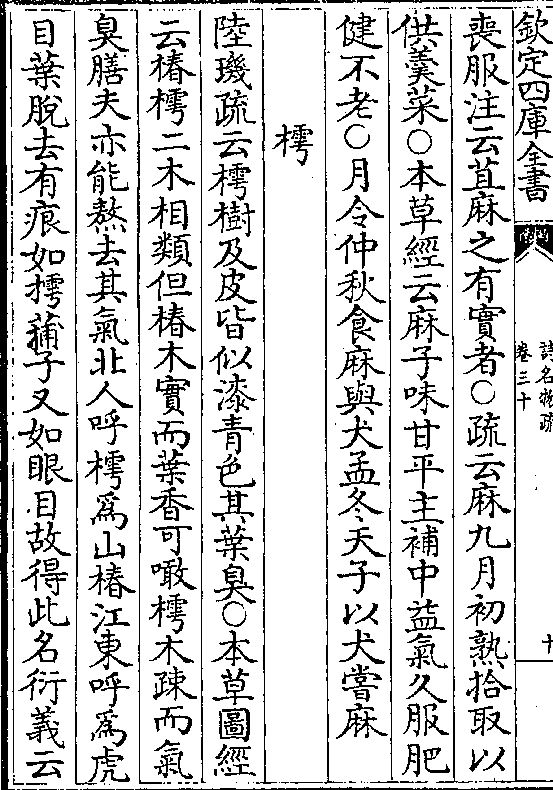 欽定四庫全書
詩名物疏
卷三十
十
喪服注云苴麻之有實者○疏云麻九月初熟拾取以
供羹菜○本草經云麻子味甘平主補中益氣久服肥
健不老○月令仲秋食麻與犬孟冬天子以犬嘗麻
樗
陸璣疏云樗樹及皮皆似漆青色其葉臭○本草圖經
云椿樗二木相類但椿木實而葉香可噉樗木疎而氣
臭膳夫亦能熬去其氣北人呼樗為山椿江東呼為虎
目葉脫去有痕如樗蒱子又如眼目故得此名衍義云